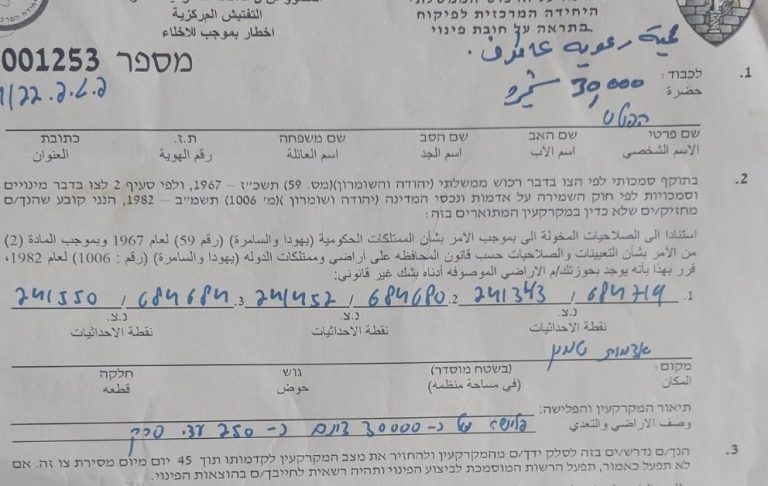 היחידה המרכזית לפיקוח
התפתיש המרכזיה
التفتيش المركزية
בתראה על חובת פינוי
اخطار بموجب للاخلاء
מספר 001253
1. לכבוד:
حضرة
30,000
שם פרטי שם האב שם הסב שם משפחה ת.ז. כתובת
الاسم الشخصي اسم الأب اسم الجد اسم العائلة رقم الهوية العنوان
2. בתוקף סמכותי לפי הצו בדבר רכוש ממשלתי (יהודה והשומרון)(מס. 59) תשכ״ז – 1967, ולפי סעיף 2 לצו בדבר מינויים
וסמכויות לפי חוק השמירה על אדמות ונכסי המדינה (יהודה ושומרון) (מ׳ 1006) תשמ״ב – 1982, הנני קובע שהנך/ם
מחזיק/ים שלא כדין במקרקעין המתוארים בזה:
استنادا الى الصلاحيات المخولة الى بموجب الأمر بشأن الممتلكات الحكومية (يهودا والسامرة) (رقم 59) لعام 1967 وبموجب المادة (2)
من الأمر بشأن التعيينات والصلاحيات حسب قانون المحافظه على أراضي وممتلكات الدوله (يهودا والسامرة) (رقم : 1006) لعام 1982,
قرر بهذا بأنه يوجد بحوزتك/م الاراضي الموصوفه أدناه بشك غير قانوني:
1. 684714 / 241343 2. 684680 / 241452 3. 684684 / 241550
נ.צ. נ.צ. נ.צ.
نقطة الاحداثيات نقطة الاحداثيات نقطة الاحداثيات
אדמות טמון
מקום: (בשטח מוסדר) גוש חלקה
المكان (في مساحة منظمه) حوض قطعه
תיאור המקרקעין והפלישה:
وصف الاراضي والتعدي
פלישה של כ- 30000 דונם כ- 250 עצי סרק
3. הנך/ם נדרש/ים בזה לסלק ידך/ם מהמקרקעין ולהחזיר את מצב המקרקעין לקדמותו תוך 45 יום מיום מסירת צו זה. אם
לא תפעל כאמור, תפעל הרשות המוסמכת לביצוע הפינוי ותהיה רשאית לחייבך/ם בהוצאות הפינוי.